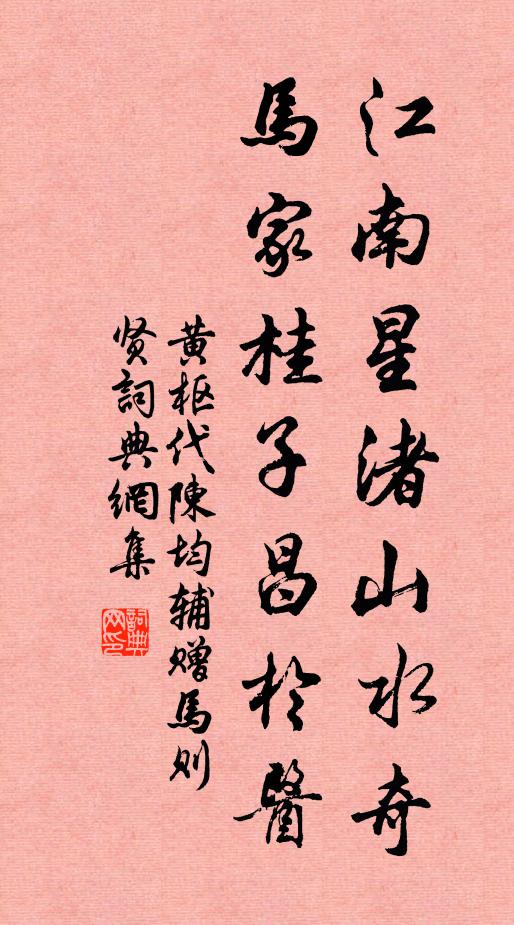 江南星渚山水奇
馬家桂子昌於醫
黄枢代陳均辅赠馬则
贤詞典網集
詞典网印